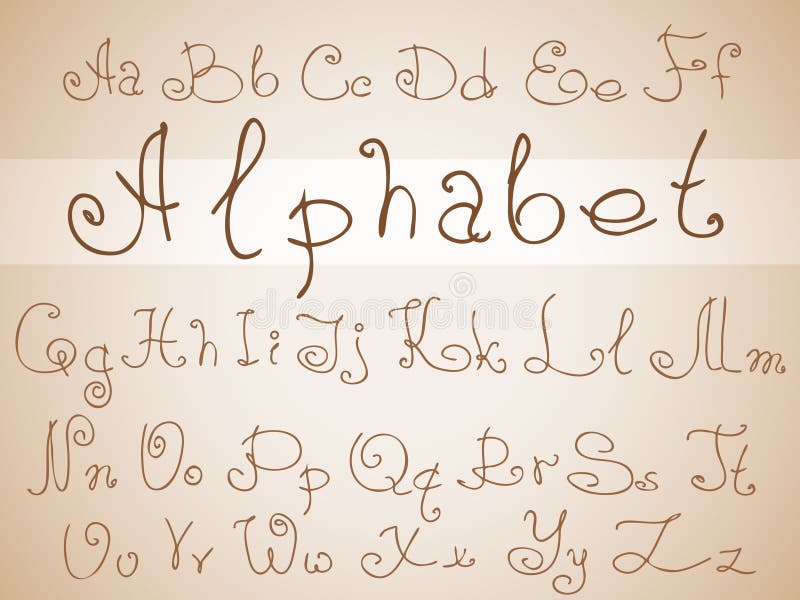 Aa Bb Cc Dd Ee Ff
Alphabet
dreamstime
Gg Hh Ii Jj Kk Ll Mm
Nn Oo Pp Qq Rr Ss Tt
Uu Vv Ww Xx Yy Zz